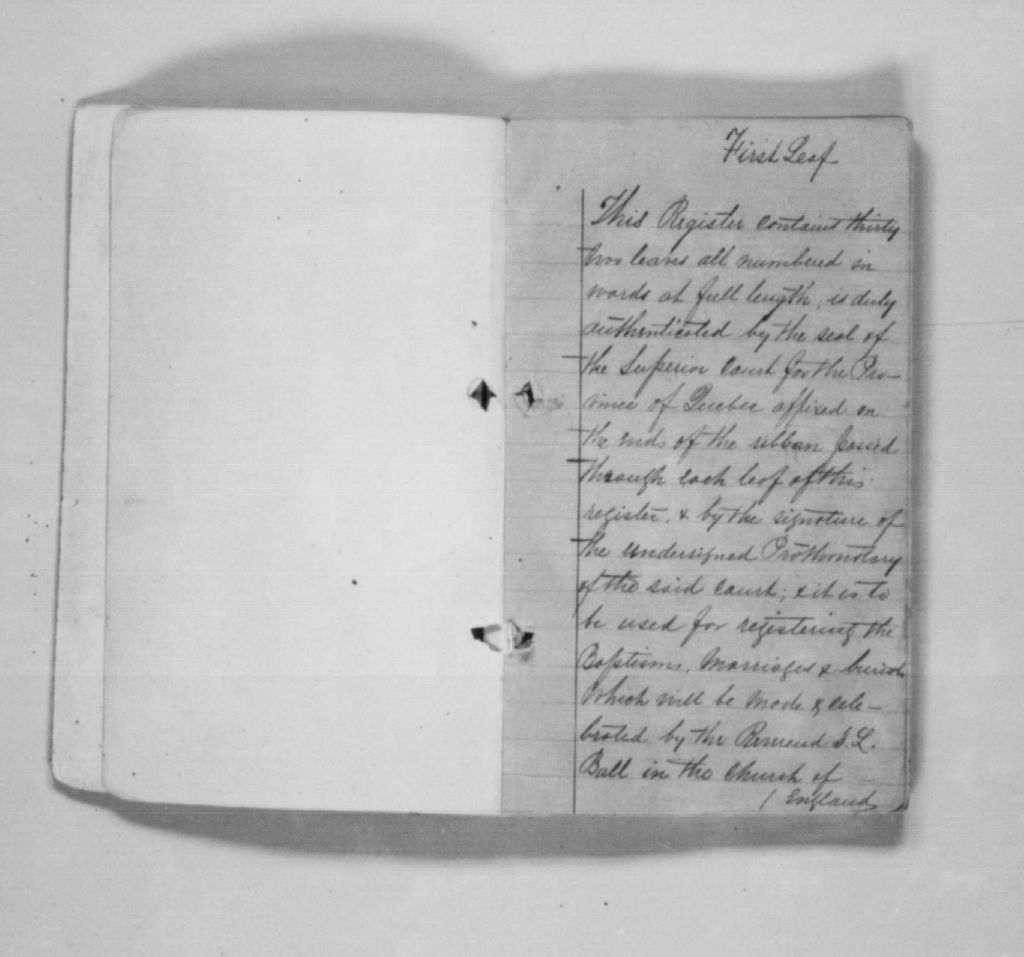 First Leaf
This Register contains thirty
two leaves all numbered in
words at full length, is duly
authenticated by the seal of
the Superior Court for the Pro-
vince of Quebec affixed on
the ends of the ribban passed
through each leaf of this
register, & by the signature of
the undersigned Prothonotary
of the said court; & it is to
be used for registering the
Baptisms, Marriages & burials
which will be made & cele-
brated by the Reverend S. L.
Ball in the Church of
/ England